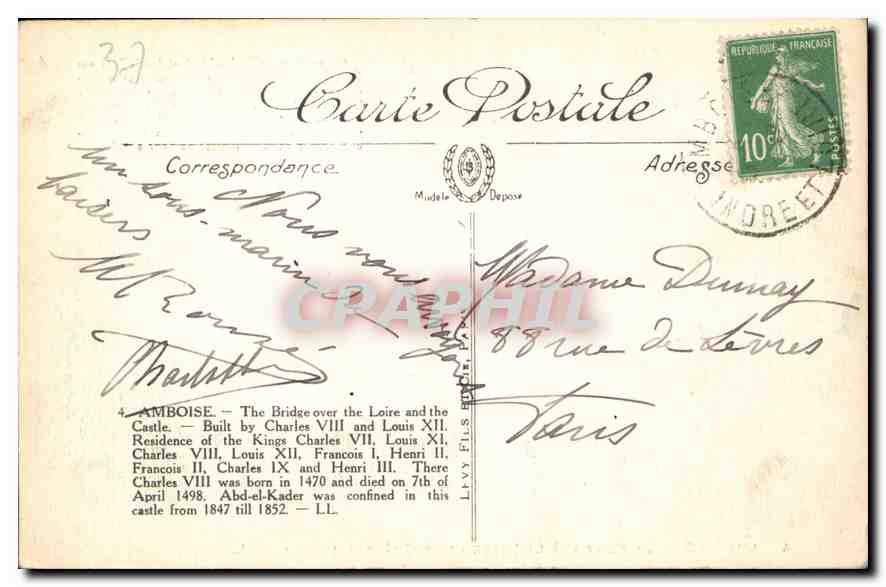 37
Carte Postale
REPUBLIQUE FRANÇAISE
10c
POSTES
INDRE ET
Correspondance
Adresse
Modèle Déposé
Nous nous envoyons
un sous-marin &
baisers
Madame Dumay
88 rue de Sèvres
Paris
CPAPHIL
4. AMBOISE. — The Bridge over the Loire and the
Castle. — Built by Charles VIII and Louis XII.
Residence of the Kings Charles VII, Louis XI,
Charles VIII, Louis XII, Francois I, Henri II,
Francois II, Charles IX and Henri III. There
Charles VIII was born in 1470 and died on 7th of
April 1498. Abd-el-Kader was confined in this
castle from 1847 till 1852. — LL.
LEVY FILS ET CIE, PARIS